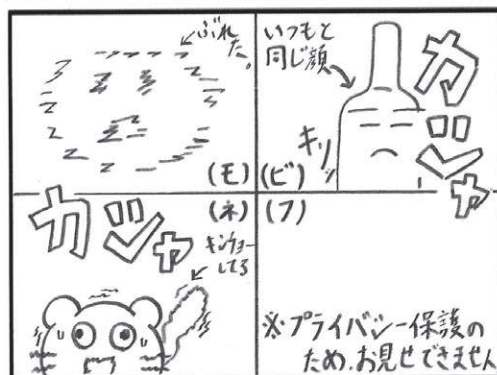 ぶれた。
(モ)
いつもと
同じ顔
キリッ
カシャ
(ビ)
カシャ
(ネ)
キンチョー
してる
(フ)
※プライバシー保護の
ため、お見せできません